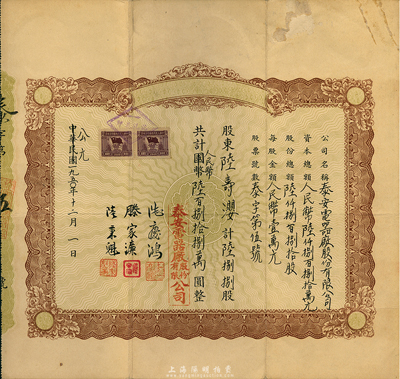 公司名稱泰安電器廠股份有限公司
資本總額人民幣陸仟捌百捌拾萬元
股份總額陸仟捌百捌拾股
每股金額人民幣壹萬元
股票號數泰字第伍號
股東陸壽 計陸捌捌股
共計國幣人民幣陸百捌拾捌萬圓整
泰安電器廠股份有限公司
沈 鴻
滕家
陸
公元
中華民國一九五〇年十二月一日
上海陽明拍賣